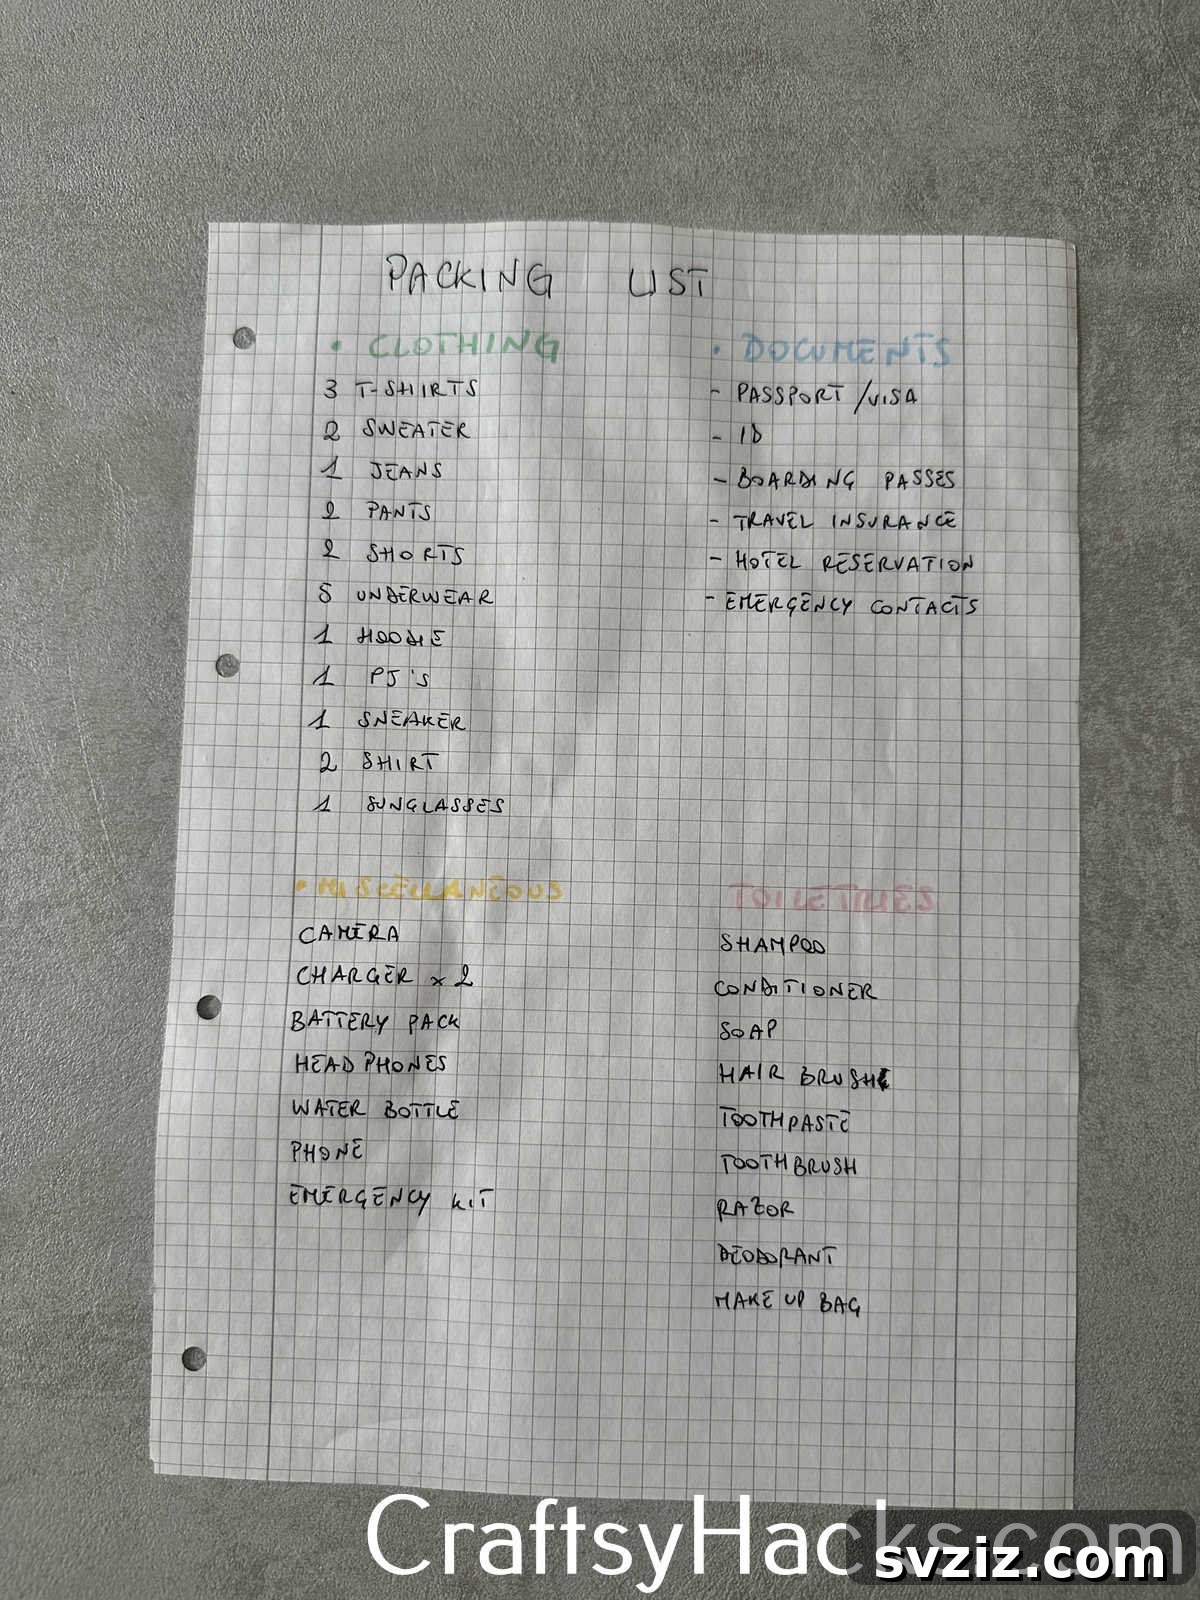 PACKING LIST
• CLOTHING
3 T-SHIRTS
2 SWEATER
1 JEANS
2 PANTS
2 SHORTS
5 UNDERWEAR
1 HOODIE
1 PJ'S
1 SNEAKER
2 SHIRT
1 SUNGLASSES
• DOCUMENTS
- PASSPORT/VISA
- ID
- BOARDING PASSES
- TRAVEL INSURANCE
- HOTEL RESERVATION
- EMERGENCY CONTACTS
• MISCELLANEOUS
CAMERA
CHARGER x 2
BATTERY PACK
HEADPHONES
WATER BOTTLE
PHONE
EMERGENCY KIT
TOILETRIES
SHAMPOO
CONDITIONER
SOAP
HAIR BRUSH
TOOTHPASTE
TOOTHBRUSH
RAZOR
DEODORANT
MAKE UP BAG
CraftsyHacks.com
svziz.com